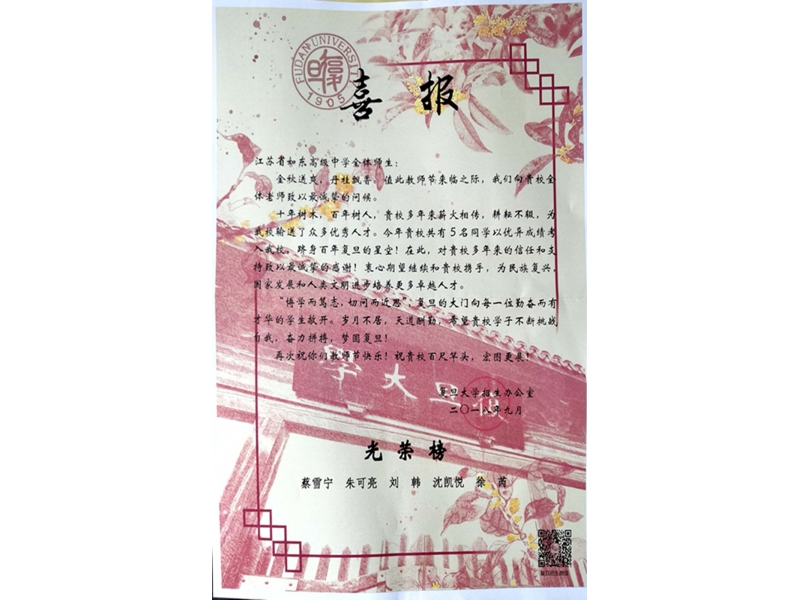 FUDAN UNIVERSITY
1905
喜报
江苏省如东高级中学全体师生：
金秋送爽，丹桂飘香。值此教师节来临之际，我们向贵校全
体老师致以最诚挚的问候。
十年树木，百年树人，贵校多年来薪火相传，耕耘不辍，为
我校输送了众多优秀人才。今年贵校共有5名同学以优异成绩考
入我校，跻身百年复旦的星空！在此，对贵校多年来的信任和支
持致以最诚挚的感谢！衷心期望继续和贵校携手，为民族复兴、
国家发展和人类文明进步培养更多卓越人才。
“博学而笃志，切问而近思”，复旦的大门向每一位勤奋而有
才华的学生敞开。岁月不居，天道酬勤，希望贵校学子不断挑战
自我，奋力拼搏，梦圆复旦！
再次祝你们教师节快乐！祝贵校百尺竿头，宏图更展！
學大旦復
复旦大学招生办公室
二〇一八年九月
光荣榜
蔡雪宁 朱可亮 刘韩 沈凯悦 徐芮